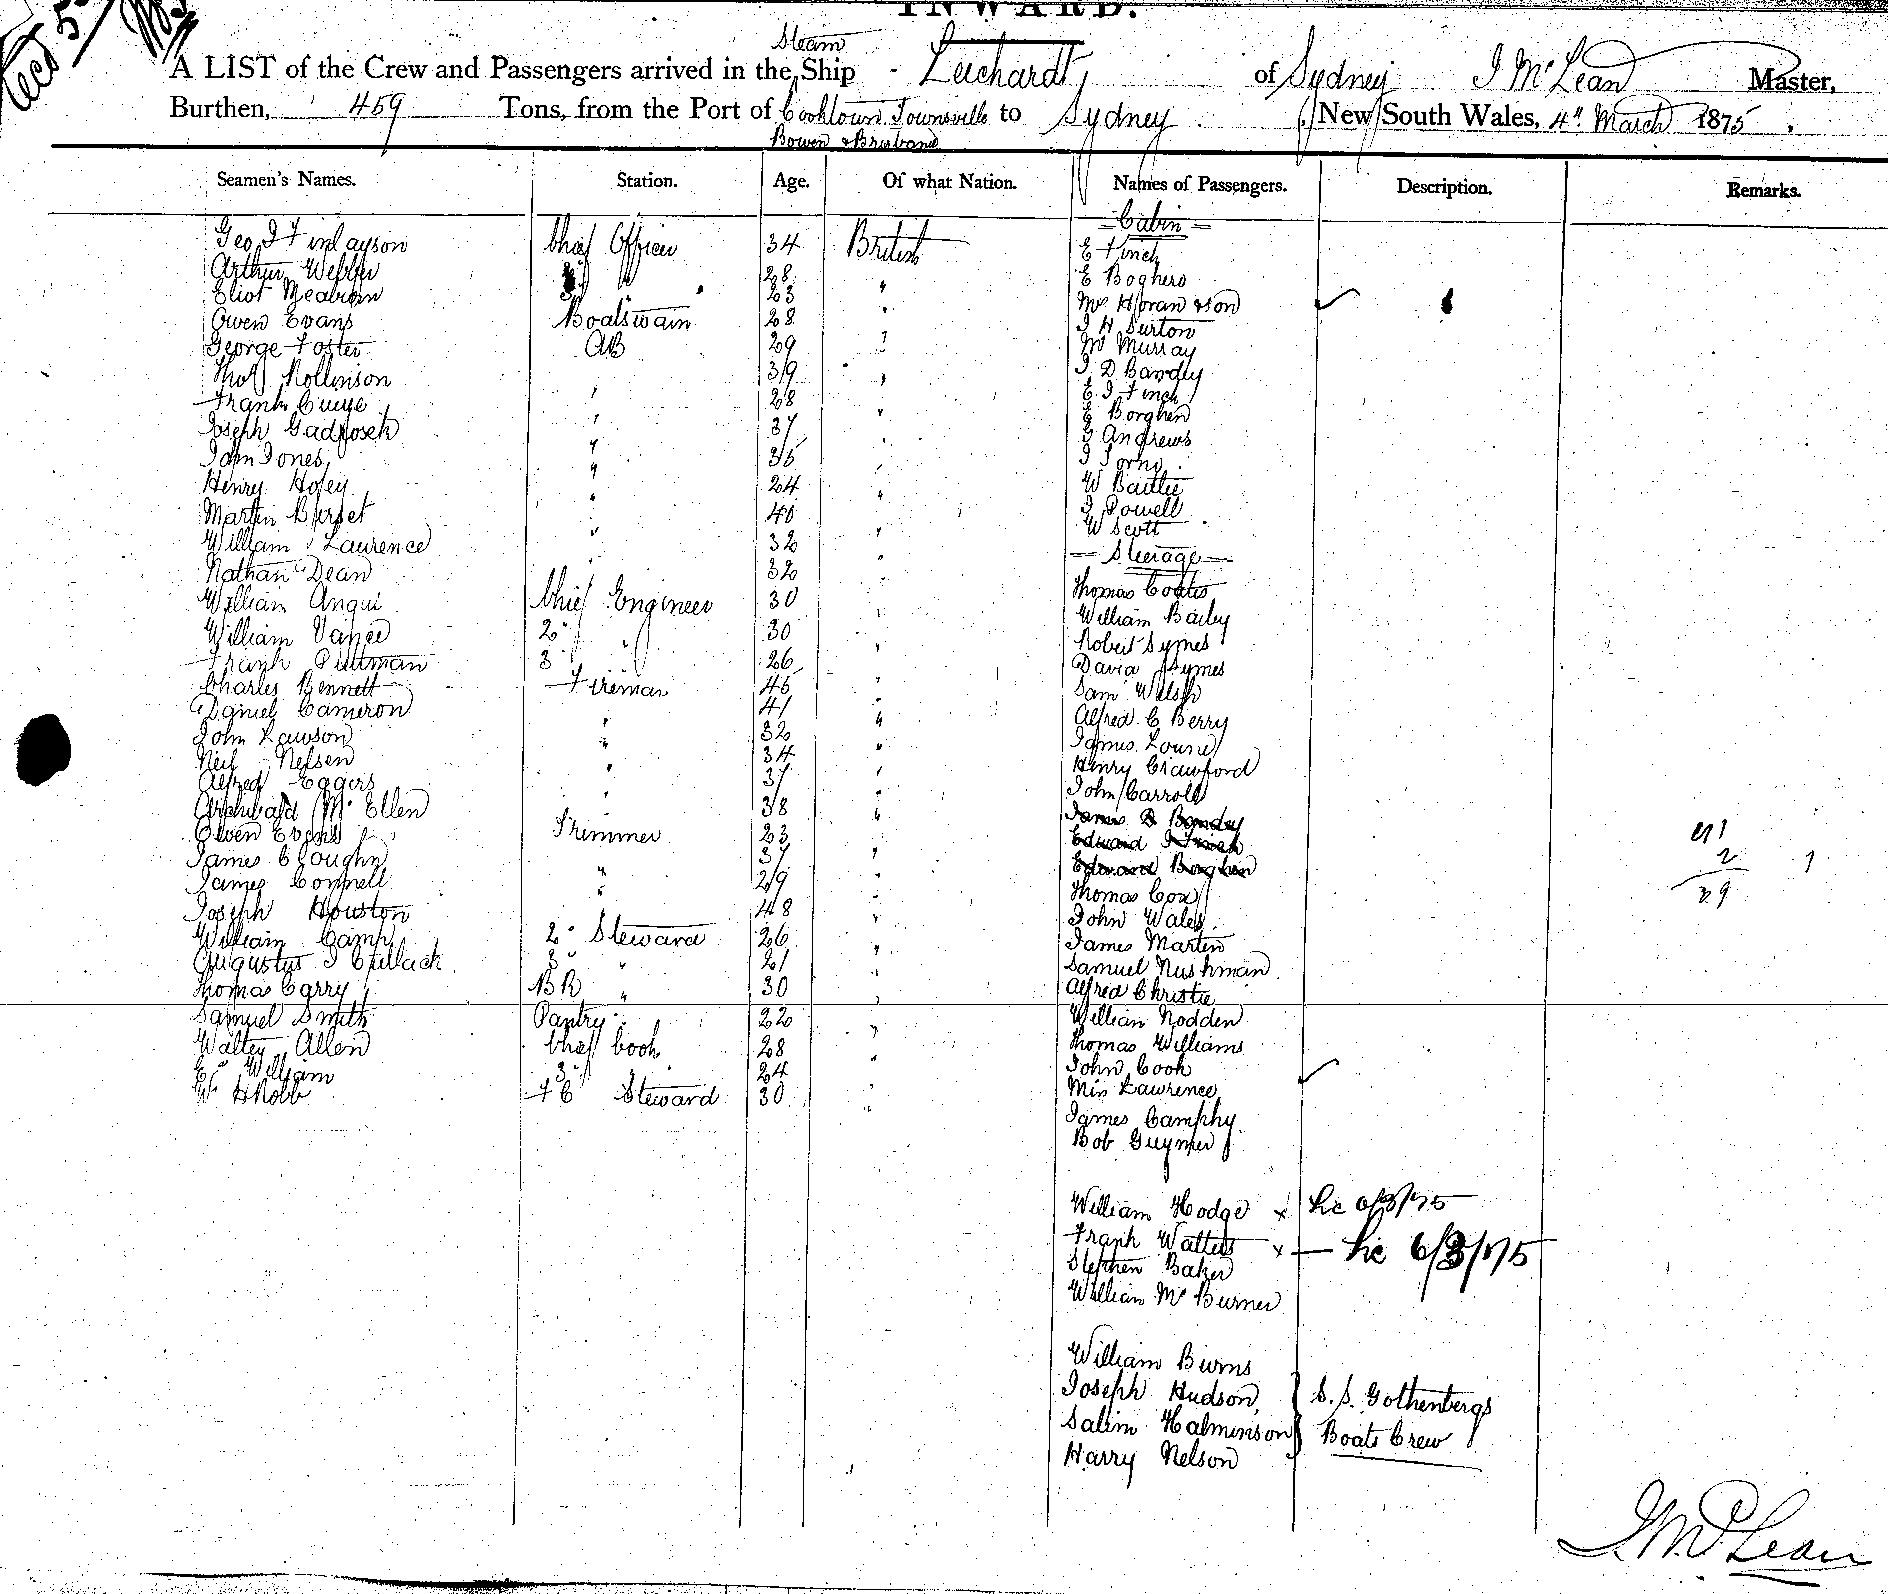 INWARD.
Steam
A LIST of the Crew and Passengers arrived in the Ship Leichardt, of Sydney J McLean Master,
Burthen, 459 Tons, from the Port of Cooktown Townsville to Sydney New South Wales, 4th March 1875.
Bowen & Brisbane
Seamen's Names. Station. Age. Of what Nation. Names of Passengers. Description. Remarks.
Cabin
Geo J Finlayson Chief Officer 34 British E Finch
Arthur Webber 28 E Boghero
Eliot 23 " Mrs Horan & Son
Owen Evans Boatswain 28 " J H Surton
George Foster AB 29 " Mr Murray
Thos Rollinson 39 " J D Bandey
Frank " 28 E. J Finch
Joseph " 37 " E Borghen
John Jones " 35 J Andrews
Henry " 24 J
Martin " 40 " W Baillie
William Laurence " 32 " J Powell
Nathan Dean " 32 " W Scott
Steerage
William Chief Engineer 30 " Thomas Coates
William Vance 2 " 30 " William Bailey
Frank Pittman 3 26 " Robert Symes
Charles Bennett Fireman 45 " David Symes
Daniel Cameron " 41 " Sam Welsh
John Lawson " 32 " Alfred C Berry
Neil Nelsen " 34 " James
Alfred Eggers " 37 " Henry Crawford
Archibald McEllen 38 " John Carroll
Owen Evans Trimmer 23 " James D Bandey
James 37 " Edward J Finch
James Connell " 29 " Edward Borghen
Joseph Houston " 48 " Thomas Cox
William Camp 2 Steward 26 " John Wales
Augustus J 3 " 21 " James Marten
Thomas Carry BR " 30 " Samuel Nushman
Samuel Smith Pantry " 22 " Alfred Christie
Walter Allen Chief Cook 28 " William Nodden
William 3 " 24 " Thomas Williams
Wm H Robb F C Steward 30 " John Cook
Mis Lawrence
James Camphy
Bob Guymer
William Hodge x
Frank Watters x 6/3/75
Stephen Baker
William McBurner
William Burns
Joseph Hudson, S. S. Gothenbergs
Salim Halminson Boats Crew
Harry Nelson
J. McLean